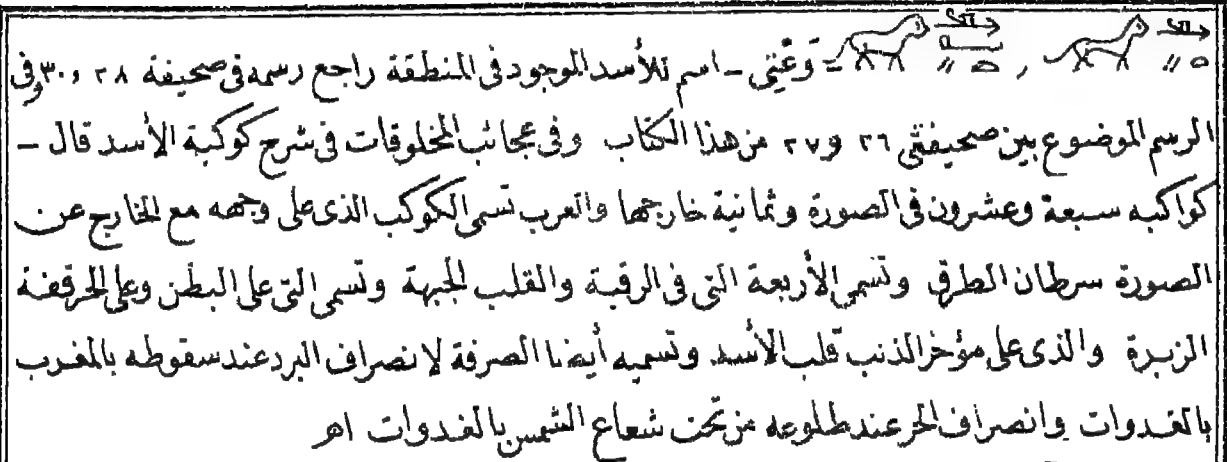 = وَعْتِي - اسم للأسد الموجود فى المنطقة راجع رسمه فى صحيفة ٢٨ و ٣٠ وفى
الرسم الموضوع بين صحيفتى ٢٦ و ٢٧ من هذا الكتاب وفى عجائب المخلوقات فى شرح كوكبة الأسد قال -
كواكبه سبعة وعشرون فى الصورة وثمانية خارجها والعرب تسمى الكوكب الذى على وجهه مع الخارج عن
الصورة سرطان الطرق وتسمى الأربعة التى فى الرقبة والقلب الجبهة وتسمى التى على البطن وعلى الحرقفة
الزبرة والذى على مؤخر الذنب قلب الأسد وتسميه أيضا الصرفة لانصراف البرد عند سقوطه بالمغرب
بالغدوات وانصراف الحر عند طلوعه من تحت شعاع الشمس بالغدوات اهر